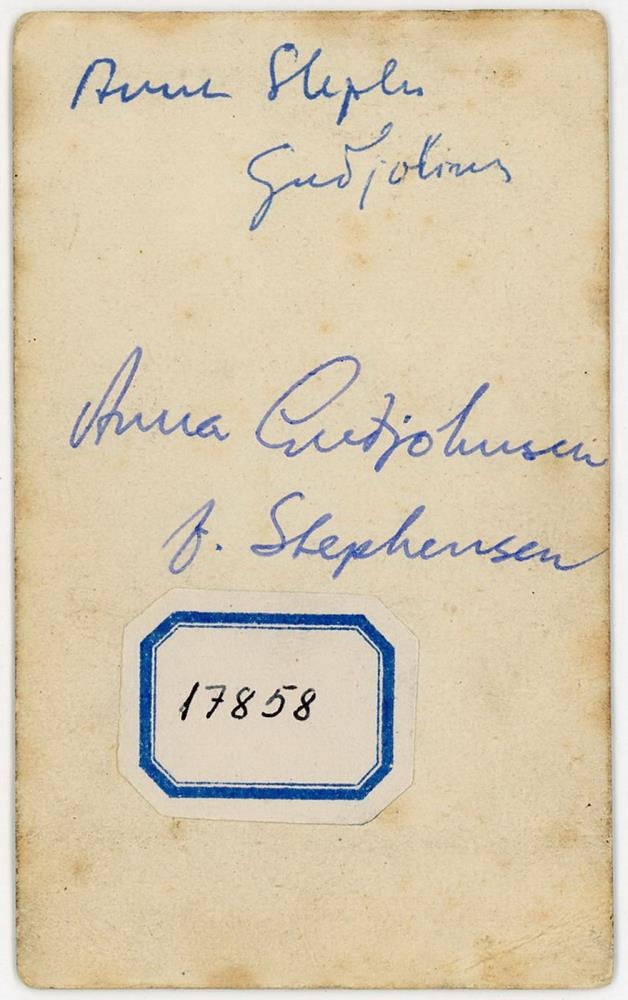 Anna Stephs
Guðjohns
Anna Guðjohnsen
f. Stephensen
17858